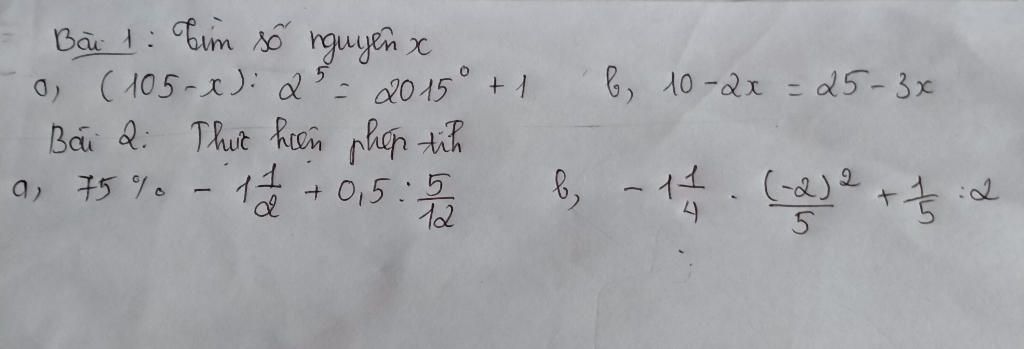 Bài 1: Tìm số nguyên x
a, (105-x): 2⁵ = 2015⁰ + 1 b, 10-2x = 25-3x
Bài 2: Thực hiện phép tíh
a, 75% - 1 1/2 + 0,5 : 5/12 b, -1 1/4 . (-2)²/5 + 1/5 :2